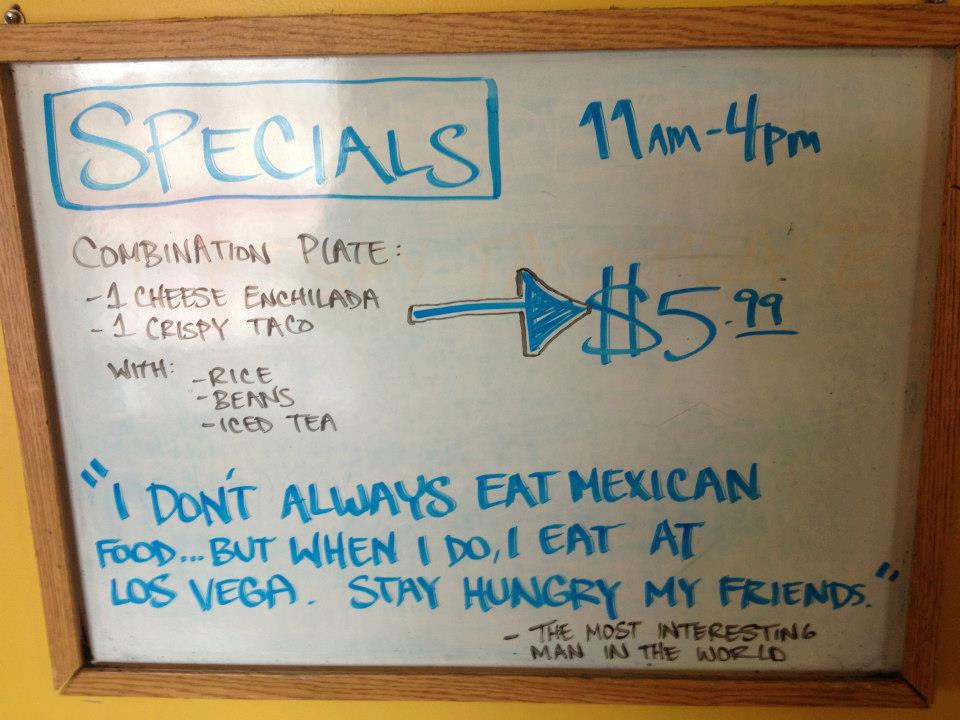 SPECIALS 11AM-4PM
COMBINATION PLATE:
-1 CHEESE ENCHILADA
-1 CRISPY TACO
$5.99
WITH: -RICE
-BEANS
-ICED TEA
"I DON'T ALWAYS EAT MEXICAN
FOOD...BUT WHEN I DO, I EAT AT
LOS VEGA. STAY HUNGRY MY FRIENDS."
- THE MOST INTERESTING
MAN IN THE WORLD